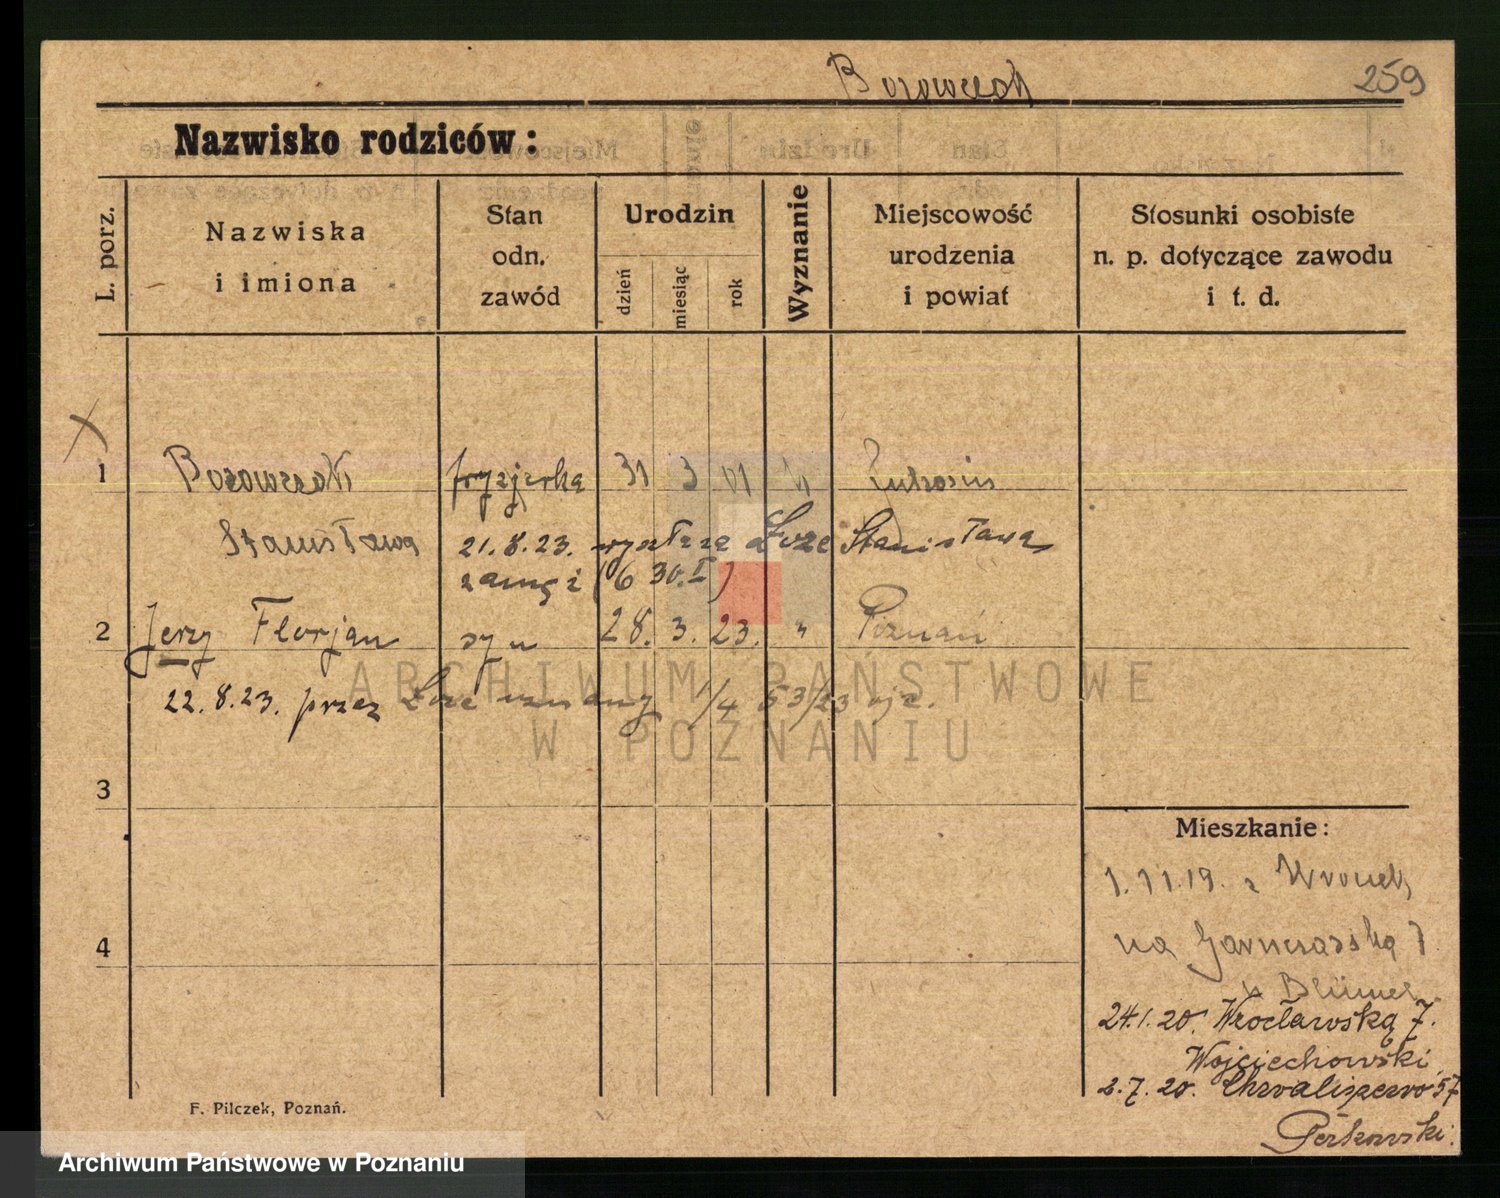 259
Nazwisko rodziców:
L. porz.
Nazwiska
i imiona
Stan
odn.
zawód
Urodzin
dzień
miesiąc
rok
Wyznanie
Miejscowość
urodzenia
i powiat
Stosunki osobiste
n. p. dotyczące zawodu
i t. d.
1
fryzjerka 31 3 01
Stanisława
21.8.23. Stanisława
(6 30.I)
2 Jerzy Florjan syn 28. 3. 23. " Poznań
22.8.23. przez 53/23
3
4
Mieszkanie:
1.11.19. z Wronek
na Garncarską 7
24.1.20. Wrocławską 7.
Wojciechowski
2.7.20. 57
F. Pilczek, Poznań.
ARCHIWUM PAŃSTWOWE
W POZNANIU
Archiwum Państwowe w Poznaniu